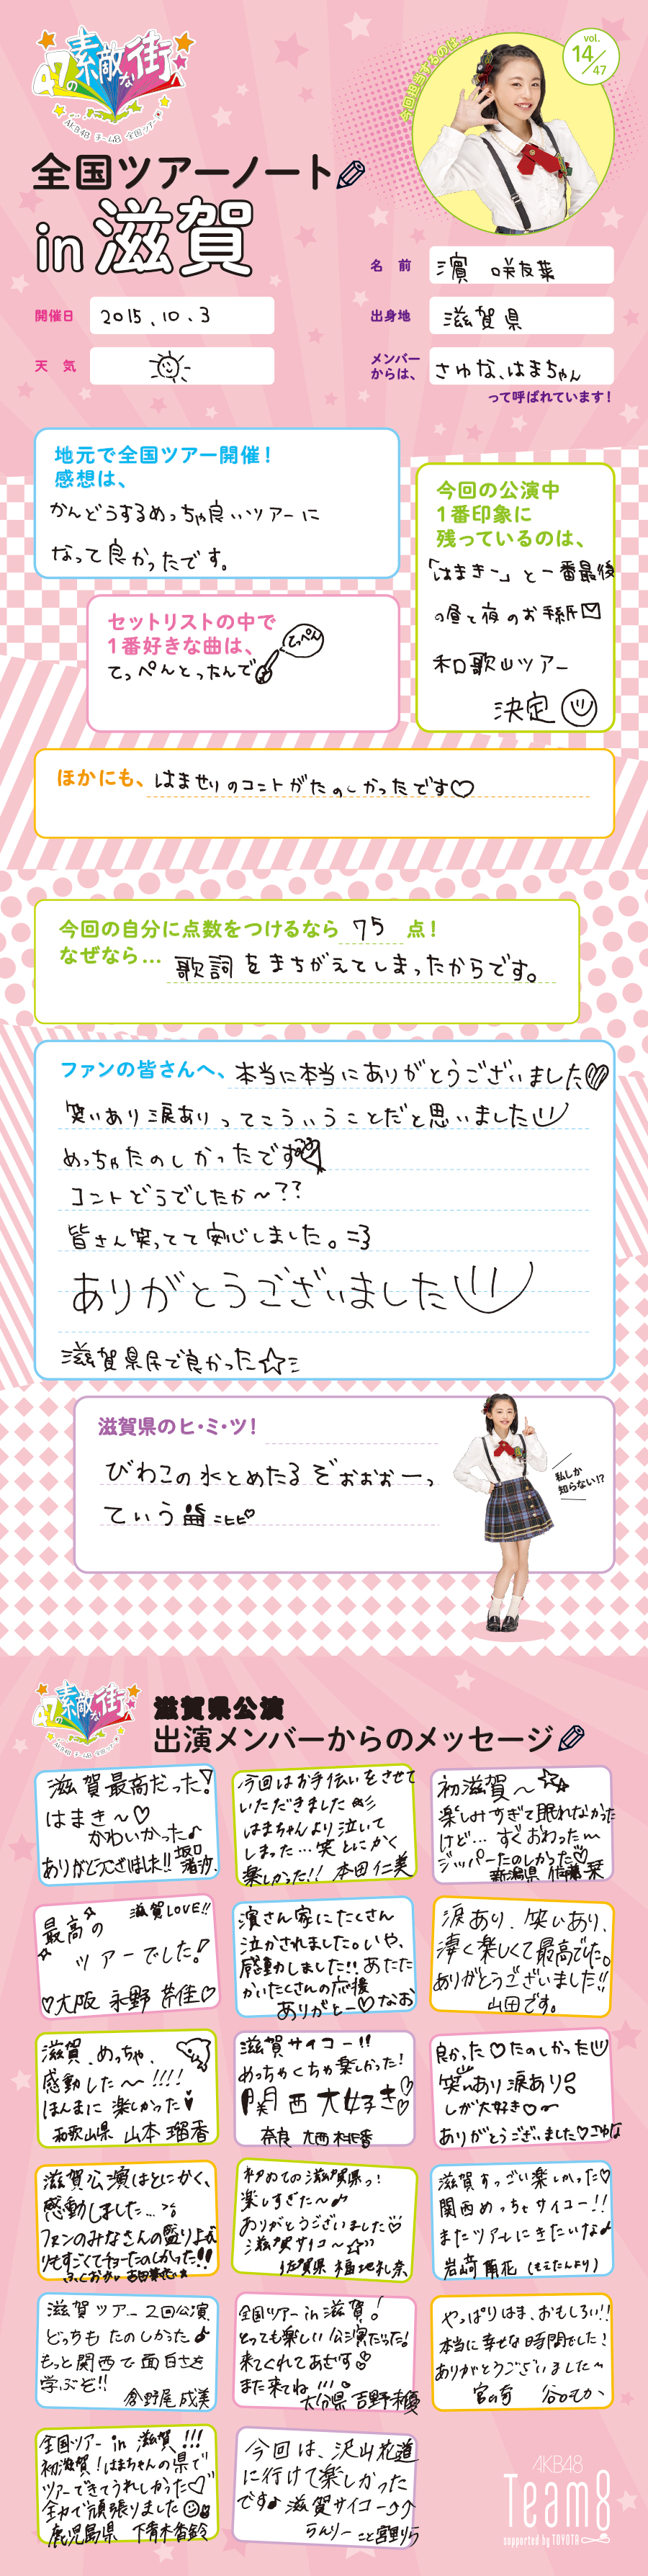 47の素敵な街へ
AKB48 チーム8 全国ツアー
今回担当するのは…
vol.
14/47
全国ツアーノート
in 滋賀
名 前 濵 咲友菜
開催日 2015.10.3
出身地 滋賀県
天 気
メンバー
からは、
さゆな、はまちゃん
って呼ばれています!
地元で全国ツアー開催!
感想は、
かんどうするめっちゃ良いツアーに
なって良かったです。
今回の公演中
1番印象に
残っているのは、
「はまきー」と一番最後
の昼と夜のお手紙
和歌山ツアー
決定
セットリストの中で
1番好きな曲は、
てっぺんとったんで
てっぺん
ほかにも、はませりのコントがたのしかったです♡
今回の自分に点数をつけるなら 75 点!
なぜなら… 歌詞をまちがえてしまったからです。
ファンの皆さんへ、本当に本当にありがとうございました♡
笑いあり涙ありってこういうことだと思いました
めっちゃたのしかったです
コントどうでしたか〜??
皆さん笑ってて安心しました。
ありがとうございました
滋賀県民で良かった☆
滋賀県のヒ・ミ・ツ!
びわこの水とめたるぞおぉおーっ
ていう
ニヒヒ♡
私しか
知らない!?
47の素敵な街へ
AKB48 チーム8 全国ツアー
滋賀県公演
出演メンバーからのメッセージ
滋賀最高だった!
はまき〜♡
かわいかった♪
ありがとうございました!! 坂口渚沙.
今回はお手伝いをさせて
いただきました
はまちゃんより泣いて
しまった…笑 とにかく
楽しかった!! 本田仁美
初滋賀〜☆
楽しみすぎて眠れなかった
けど… すぐおわった〜
ジッパーたのしかった♡
新潟県 佐藤栞
滋賀LOVE!!
最高の
ツアーでした!
♡大阪 永野芹佳♡
濵さん家にたくさん
泣かされました。いや、
感動しました!! あたた
かいたくさんの応援
ありがとー♡なお
涙あり、笑いあり、
凄く楽しくて最高でした。
ありがとうございました!!
山田です。
滋賀、めっちゃ、
感動した〜!!!!
ほんまに 楽しかった
和歌山県 山本瑠香
滋賀サイコー!!
めっちゃくちゃ楽しかった!
関西大好き♡
奈良 大西桃香
良かった♡たのしかった
笑いあり涙あり!
しが大好き♡
ありがとうございました♡さゆな
滋賀公演はとにかく、
感動しました…
ファンのみなさんの盛り上が
りもすごくてチョーたのしかった!!
ふくおか 吉田華恋
初めての滋賀県っ!
楽しすぎた〜♪
ありがとうございました♡
滋賀サイコ〜☆
佐賀県 福地礼奈
滋賀すっごい楽しかった♡
関西めっちゃサイコー!!
またツアーにきたいな♪
岩﨑萌花 (もえたんより)
滋賀ツアー 2回公演
どっちも たのしかった♪
もっと関西で面白さを
学ぶぞ!! 倉野尾成美
全国ツアー in 滋賀!
とっても楽しい公演だった!
来てくれてあざす
また来てね!!!
大分県 吉野未優
やっぱりはま、おもしろい!!
本対に幸せな時間でした!
ありがとうございました〜
宮の奇 谷口もか、
全国ツアー in 滋賀!!!
初滋賀!はまちゃんの県で
ツアーできてうれしかった♡
全力で頑張りました
鹿児島県 下青木香鈴
今回は、沢山花道
に行けて楽しかった
です♪ 滋賀サイコー↗↗
らんりー こと宮里りら
AKB48
Team8
supported by TOYOTA